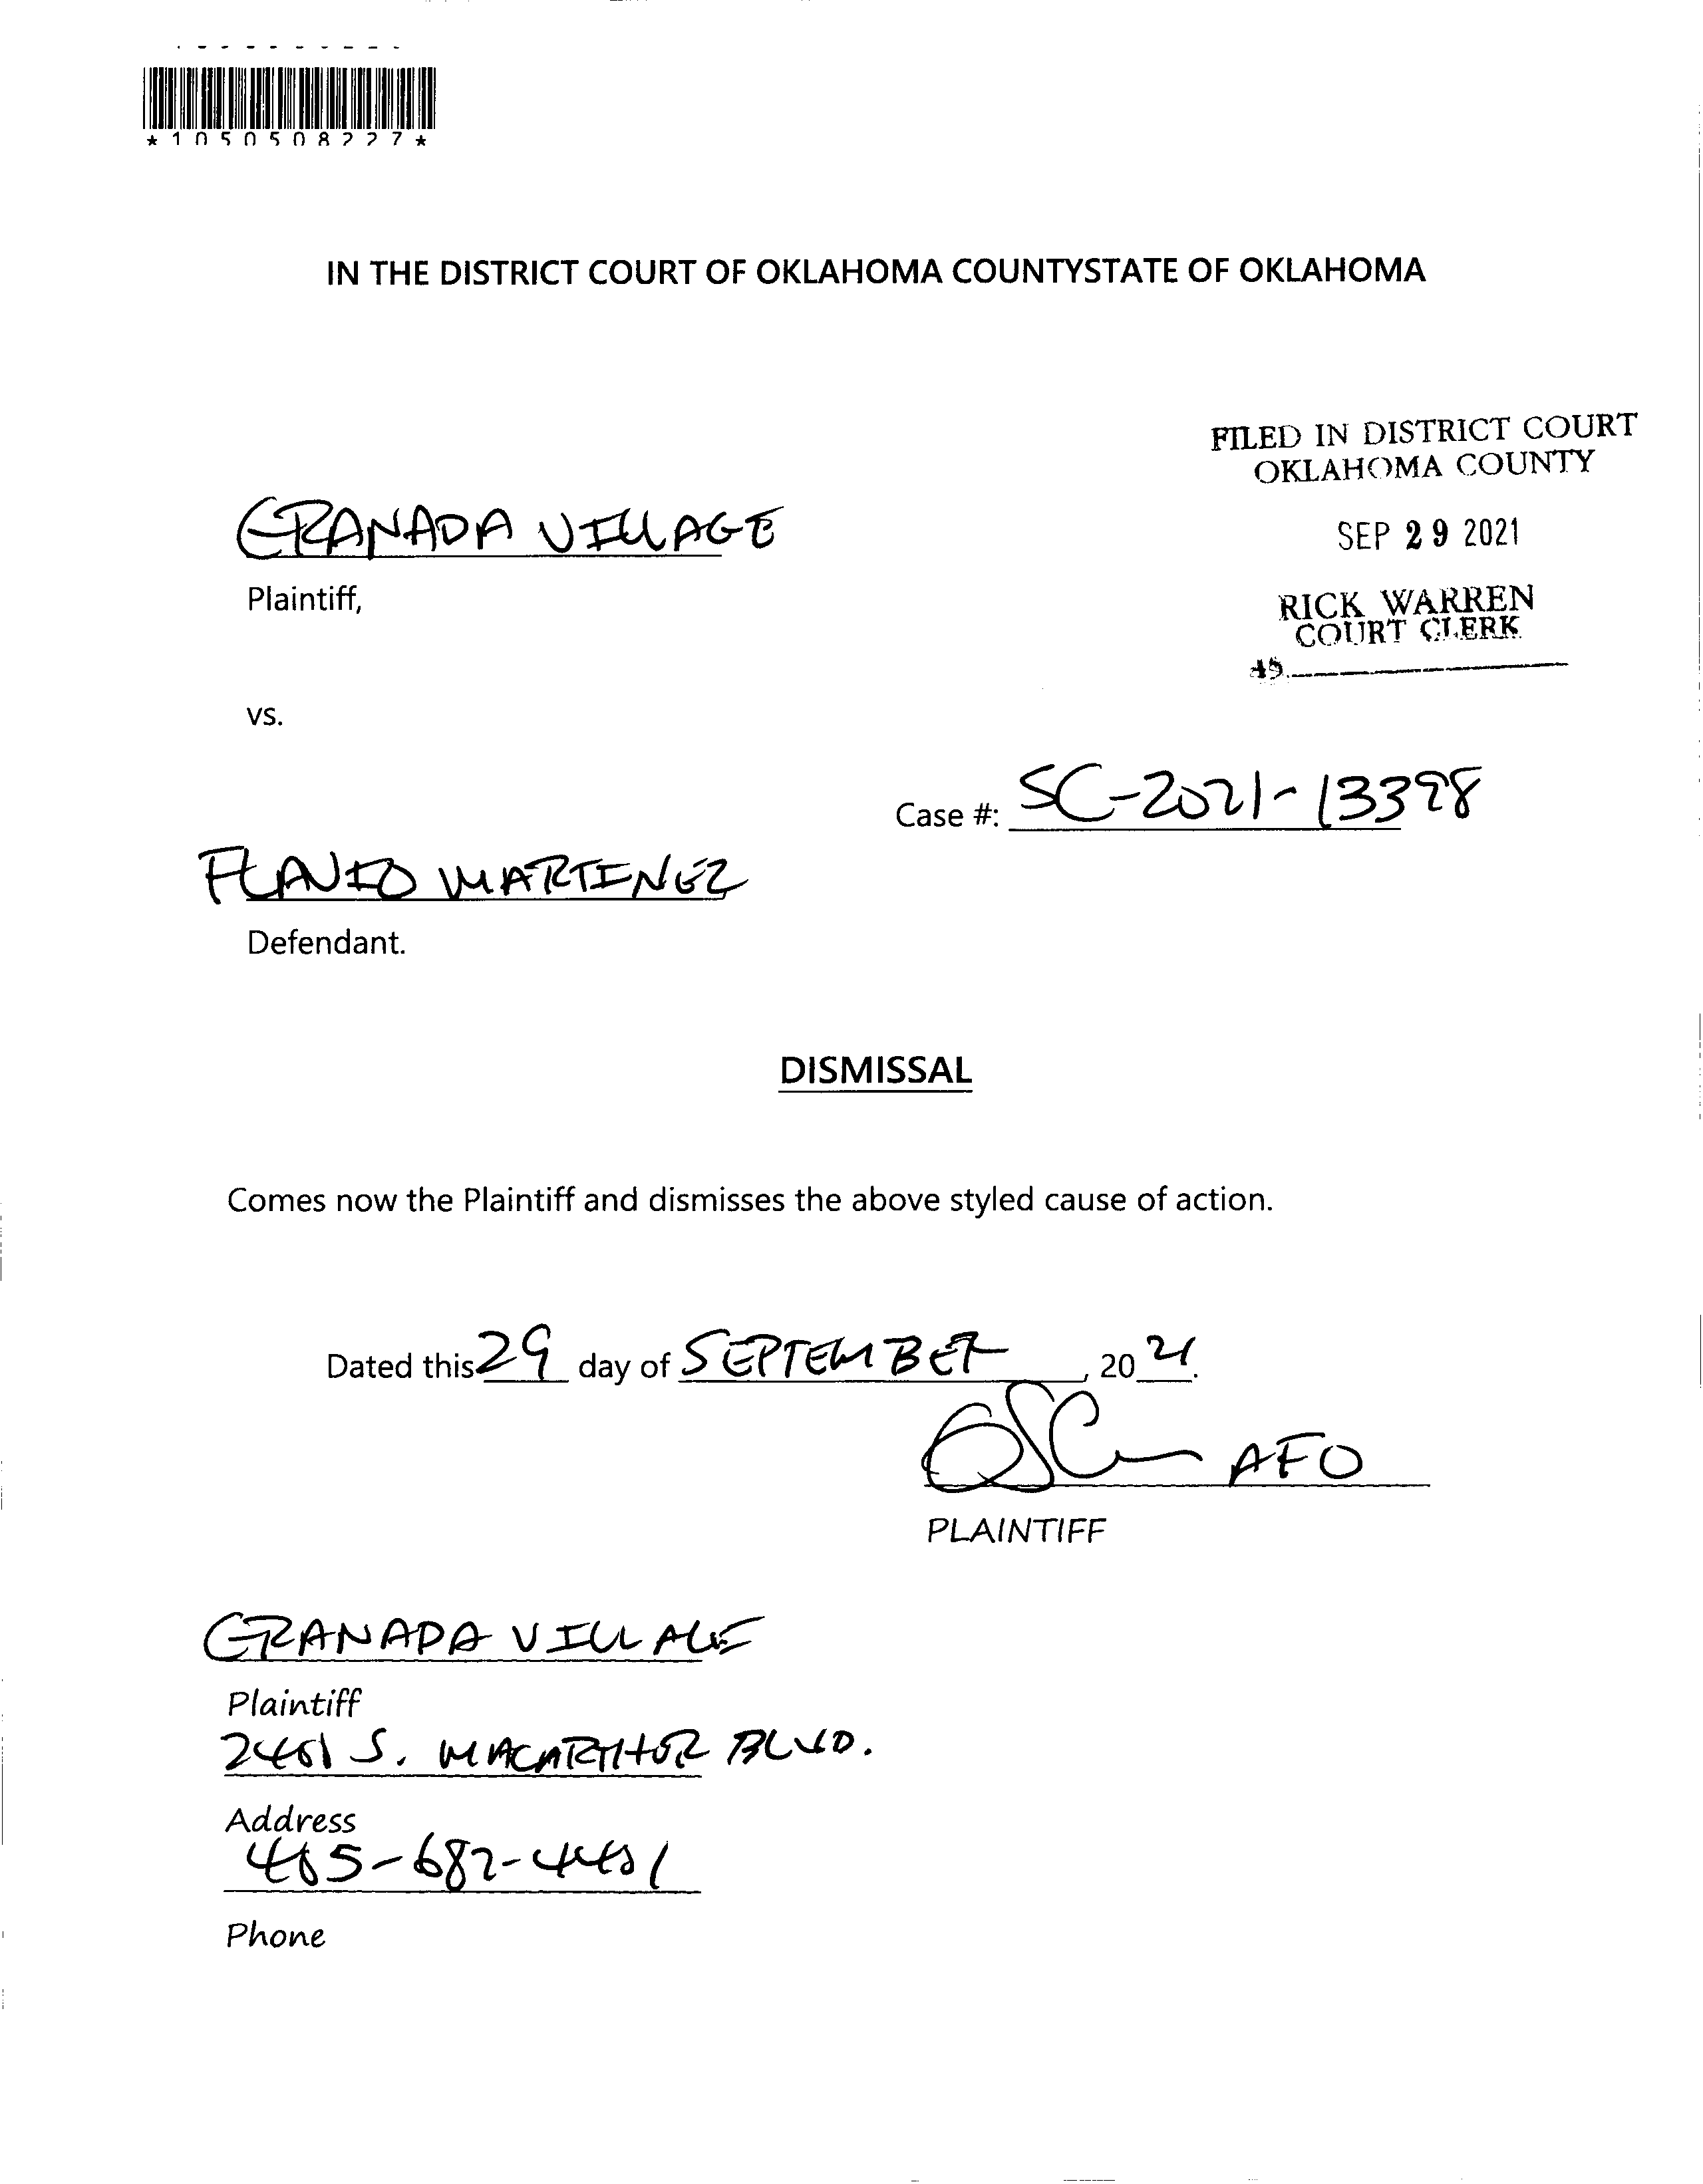 *1050508227*
IN THE DISTRICT COURT OF OKLAHOMA COUNTYSTATE OF OKLAHOMA
FILED IN DISTRICT COURT
OKLAHOMA COUNTY
SEP 29 2021
RICK WARREN
COURT CLERK
GRANADA VILLAGE
Plaintiff,
vs.
Case #: SC-2021-13398
FLAVIO MARTINEZ
Defendant.
DISMISSAL
Comes now the Plaintiff and dismisses the above styled cause of action.
Dated this 29 day of SEPTEMBER, 20 21.
AFO
PLAINTIFF
GRANADA VILLAGE
Plaintiff
2401 S. MACARTHUR BLVD.
Address
405-682-4401
Phone